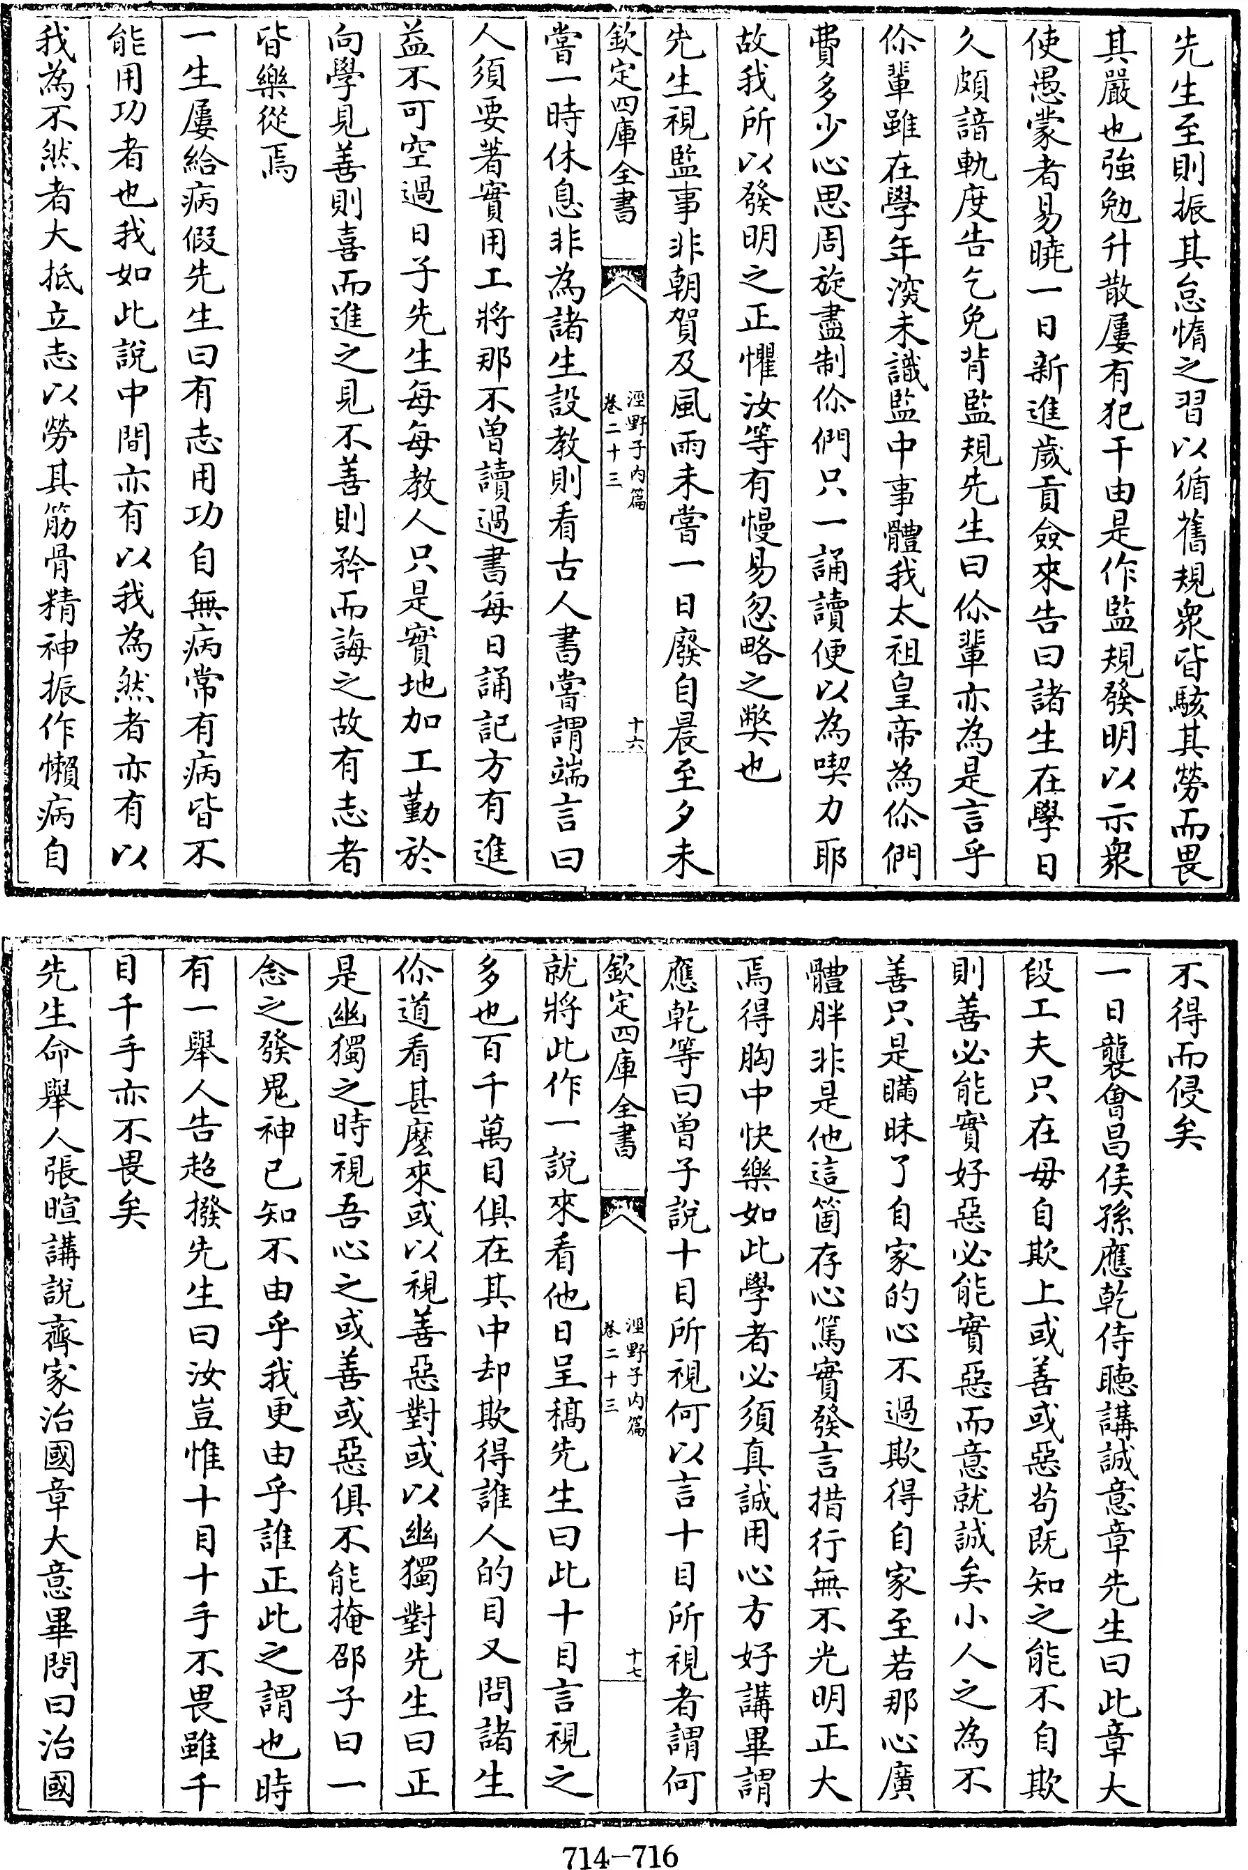 先生至則振其怠惰之習以循舊規衆皆駭其勞而畏
其嚴也強勉升散屢有犯干由是作監規發明以示衆
使愚蒙者易曉一日新進歲貢僉來告曰諸生在學日
久頗諳軌度告乞免背監規先生曰伱輩亦為是言乎
伱輩雖在學年深未識監中事體我太祖皇帝為伱們
費多少心思周旋盡制伱們只一誦讀便以為喫力耶
故我所以發明之正懼汝等有慢易忽略之弊也
先生視監事非朝賀及風雨未嘗一日廢自晨至夕未
欽定四庫全書
涇野子内篇
卷二十三
十六
嘗一時休息非為諸生設教則看古人書嘗謂端言曰
人須要著實用工將那不曽讀過書每日誦記方有進
益不可空過日子先生每每教人只是實地加工勤於
向學見善則喜而進之見不善則矜而誨之故有志者
皆樂從焉
一生屢給病假先生曰有志用功自無病常有病皆不
能用功者也我如此說中間亦有以我為然者亦有以
我為不然者大抵立志以勞其筋骨精神振作懶病自
不得而侵矣
一日襲會昌侯孫應乾侍聽講誠意章先生曰此章大
段工夫只在毋自欺上或善或惡茍既知之能不自欺
則善必能實好惡必能實惡而意就誠矣小人之為不
善只是瞞昧了自家的心不過欺得自家至若那心廣
體胖非是他這箇存心篤實發言措行無不光明正大
焉得胸中快樂如此學者必須真誠用心方好講畢謂
應乾等曰曽子說十目所視何以言十目所視者謂何
欽定四庫全書
涇野子内篇
卷二十三
十七
就將此作一說來看他日呈稿先生曰此十目言視之
多也百千萬目俱在其中却欺得誰人的目又問諸生
伱道看甚麽來或以視善惡對或以幽獨對先生曰正
是幽獨之時視吾心之或善或惡俱不能掩邵子曰一
念之發鬼神已知不由乎我更由乎誰正此之謂也時
有一舉人告超撥先生曰汝豈惟十目十手不畏雖千
目千手亦不畏矣
先生命舉人張暄講說齊家治國章大意畢問曰治國
714-716